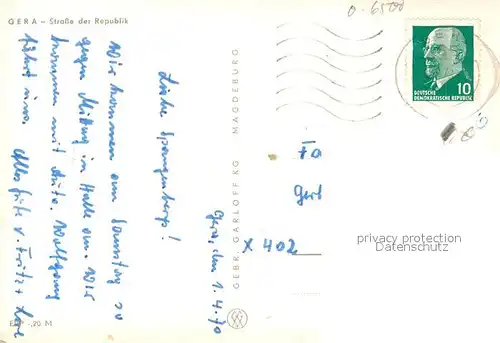 GERA – Straße der Republik
Gera, den 1.4.70
Liebe Spangenbergs!
Wir kommen am Samstag zu
gegen Mittag in Halle an. Wir
kommen mit Auto. Wolfgang
fährt uns. Alles Gute
GEBR. GARLOFF KG MAGDEBURG
EVP -,20 M
0-6500
10
DEUTSCHE
DEMOKRATISCHE REPUBLIK
Fa
Gert
X 402
privacy protection
Datenschutz